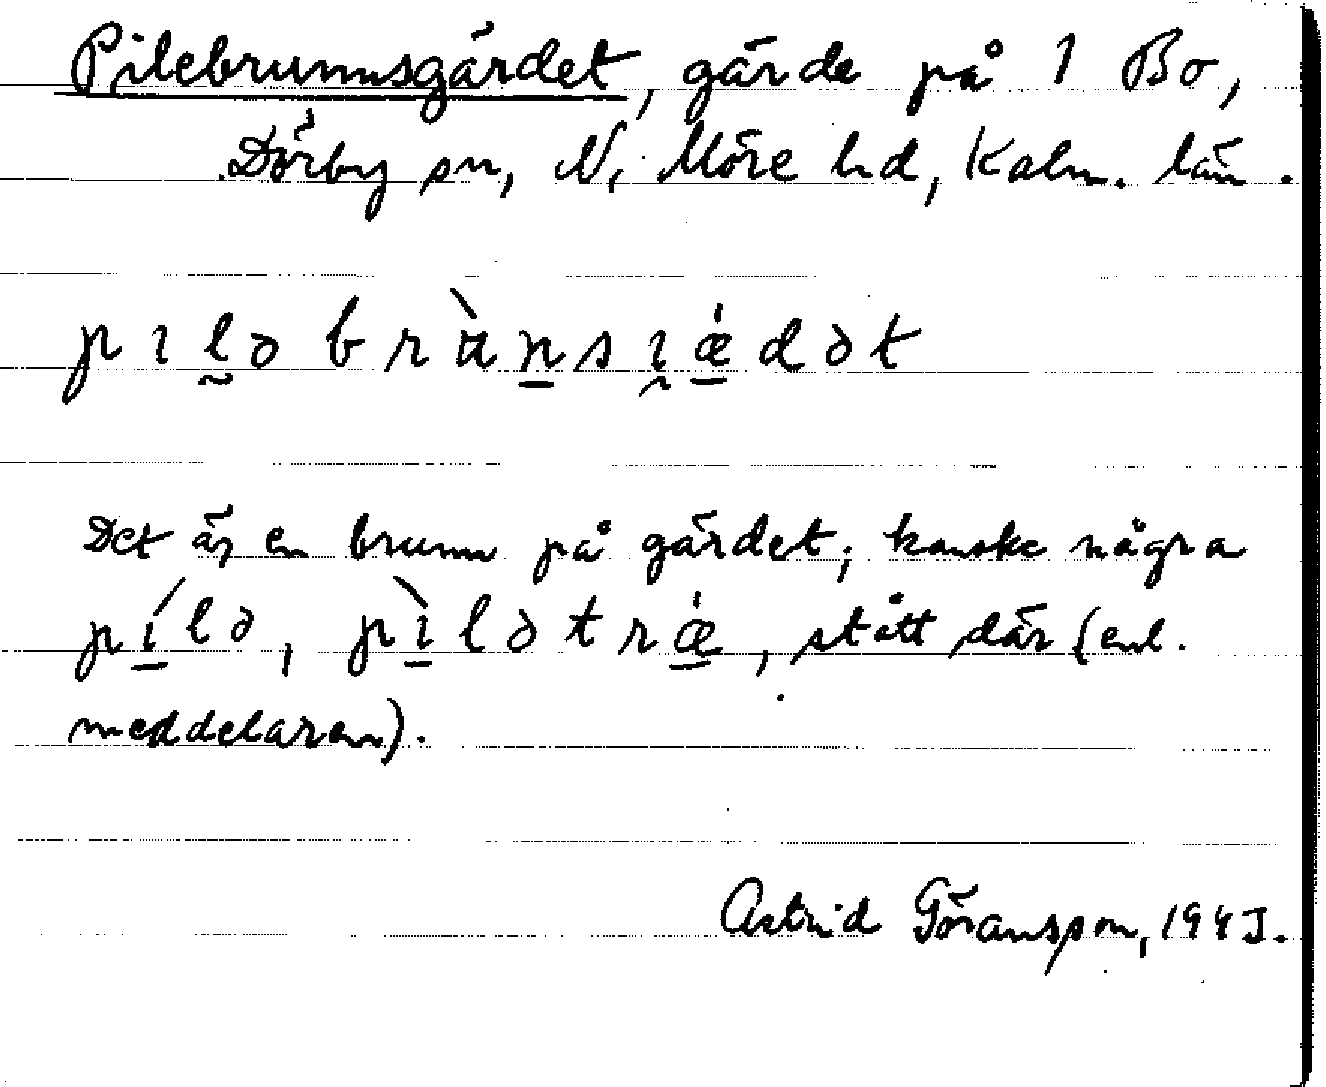 Pilebrunnsgärdet, gärde på 1 Bo,
Dörby sn, N. Möre hd, Kalm. län.
pıl̰ə brùn̲sı̯ǽ̲dət
Det är en brunn på gärdet; kanske några
pı̲́lə, pı̲̀lətrǽ̲, stått där (enl.
meddelaren).
Astrid Göransson,